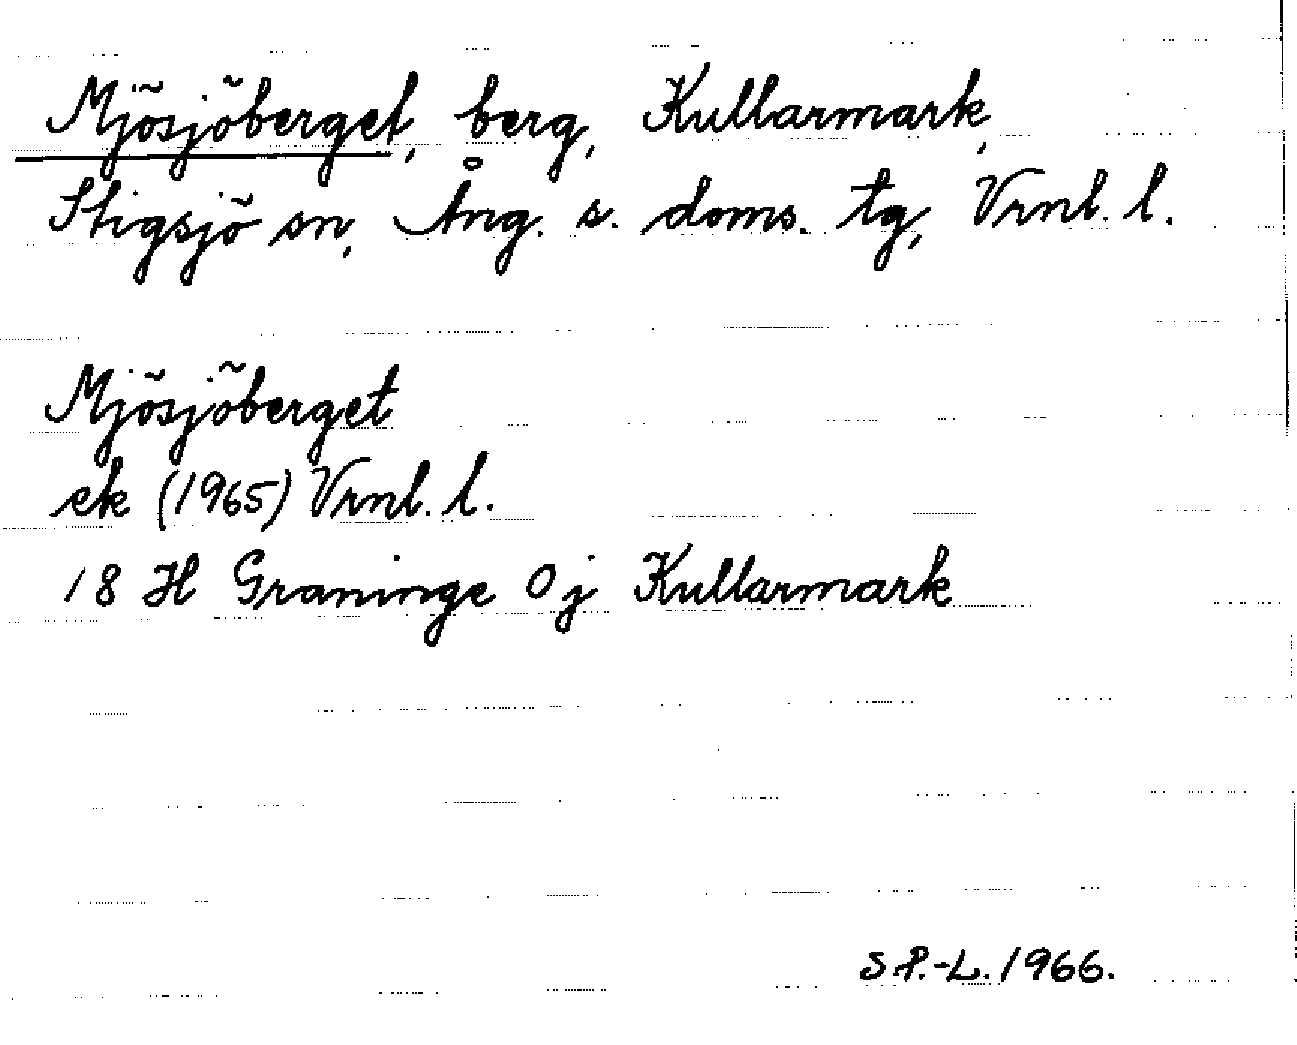 Mjösjöberget, berg, Kullarmark,
Stigsjö sn, Ång. s. doms. tg, Vrnl. l.
Mjösjöberget
ek (1965) Vrnl. l.
18 H Graninge 0 j Kullarmark
S.P.-L. 1966.